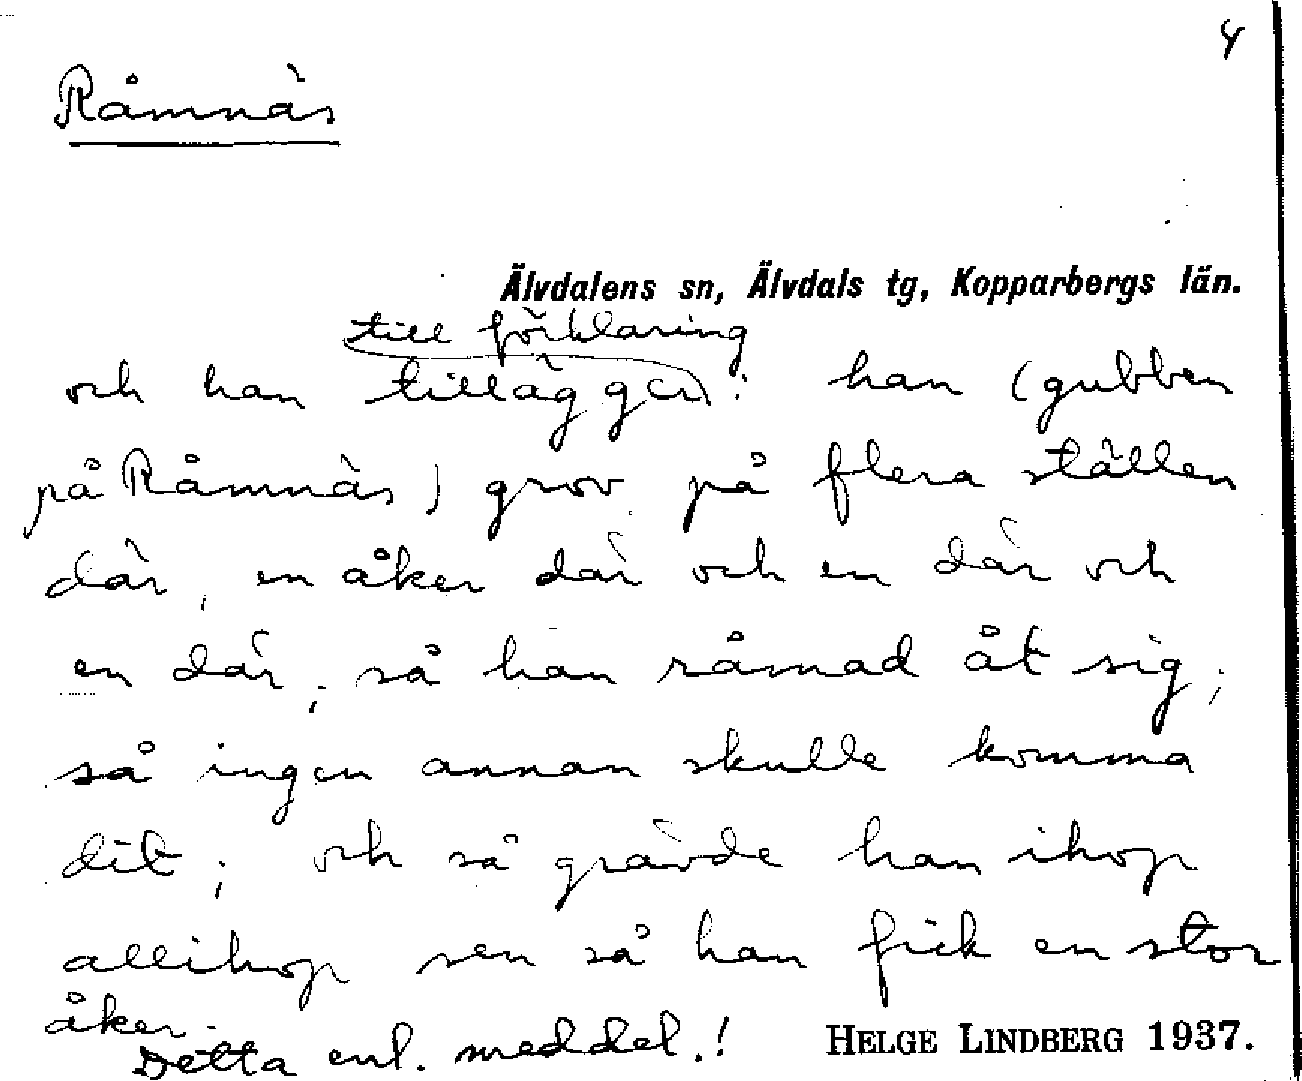 4
Råmnäs
Älvdalens sn, Älvdals tg, Kopparbergs län.
till förklaring
och han tillägger: han (gubben
på Råmnäs) grov på flera ställen
där, en åker där och en där och
en där; så han råmad åt sig;
så ingen annan skulle komma
dit; och så grävde han ihop
allihop sen så han fick en stor
åker.
Detta enl. meddel.!
HELGE LINDBERG 1937.